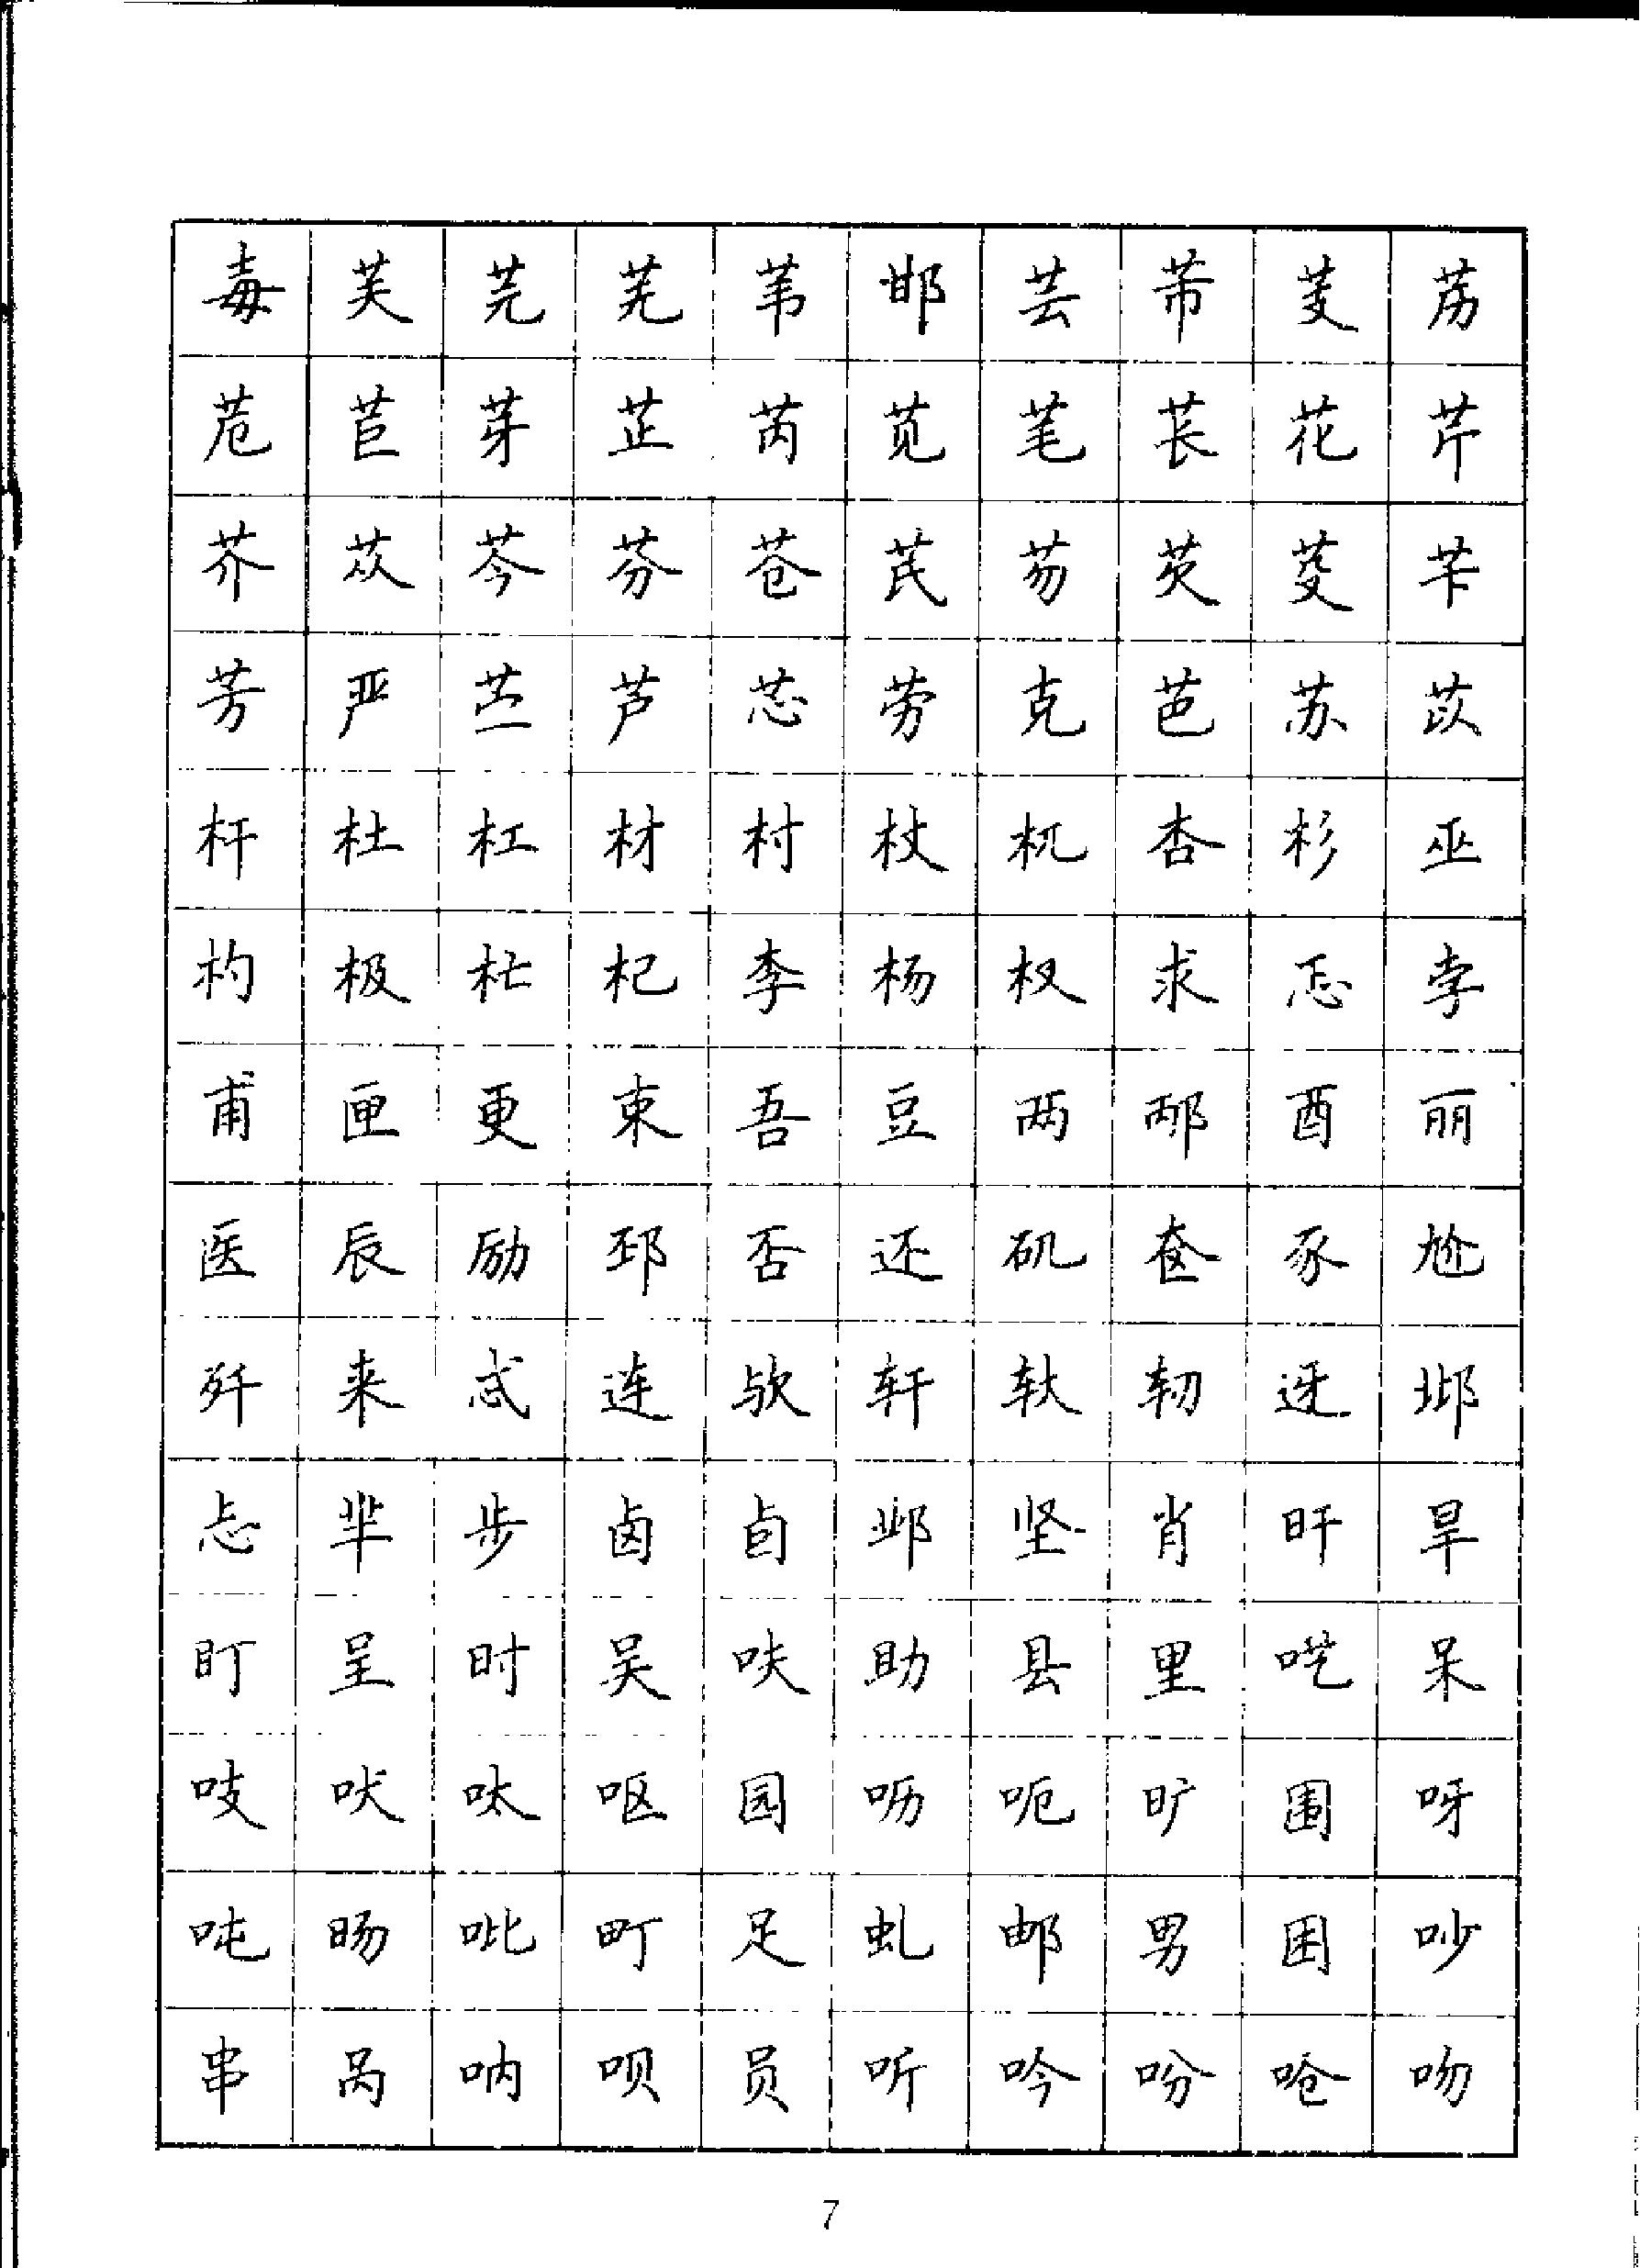 毒 芙 芫 芜 苇 邯 芸 芾 芰 苈
苊 苣 芽 芷 芮 苋 芼 苌 花 芹
芥 苁 芩 芬 苍 芪 芴 芡 芟 苄
芳 严 苎 芦 芯 劳 克 芭 苏 苡
杆 杜 杠 材 村 杖 杌 杏 杉 巫
杓 极 杧 杞 李 杨 杈 求 忑 孛
甫 匣 更 束 吾 豆 两 邴 酉 丽
医 辰 励 邳 否 还 矶 奁 豕 尬
歼 来 忒 连 欤 轩 轪 轫 迓 邶
忐 芈 步 卤 卣 邺 坚 肖 旰 旱
盯 呈 时 吴 呋 助 县 里 呓 呆
吱 吠 呔 呕 园 呖 呃 旷 围 呀
吨 旸 吡 町 足 虬 邮 男 困 吵
串 呙 呐 呗 员 听 吟 吩 呛 吻
7